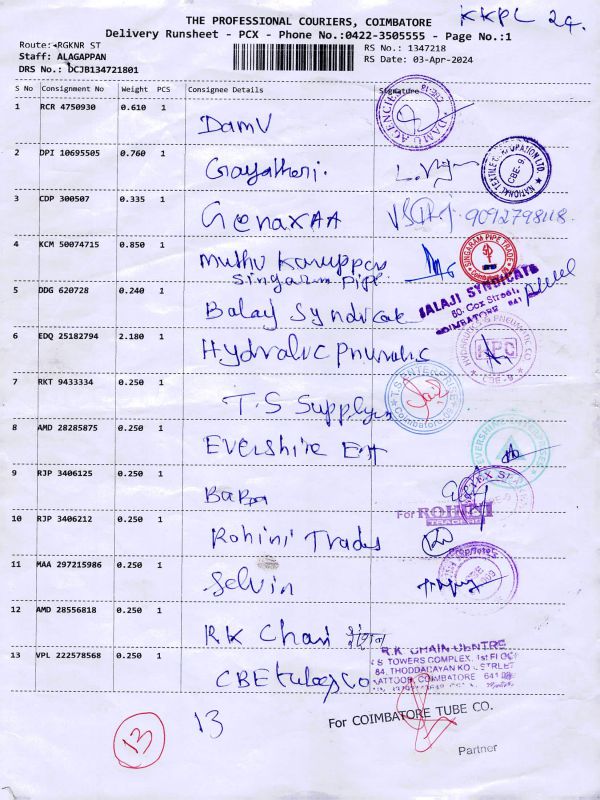 THE PROFESSIONAL COURIERS, COIMBATORE
KKPL 24.
Delivery Runsheet - PCX - Phone No.:0422-3505555 - Page No.:1
Route: RGKNR ST
RS No.: 1347218
Staff: ALAGAPPAN
RS Date: 03-Apr-2024
DRS No.: DCJB134721801
S No Consignment No Weight PCS Consignee Details Signature
1 RCR 4750930 0.610 1 DamU
DAMU AGENCIES CBE-18
2 DPI 10695505 0.760 1 Gayatheri.
NATIONAL TEXTILE CORPORATION LTD. CBE-9
3 CDP 300507 0.335 1 GenaxAA 9092798118
4 KCM 50074715 0.850 1 Muthu Karuppas
Singaram Pipe
SINGARAM PIPE TRADE
5 DDG 620728 0.240 1 Balaji Syndicate
BALAJI SYNDICATE
60, Cox Street,
COIMBATORE 641
6 EDQ 25182794 2.180 1 Hydralic Pnumatics
HPC CBE-9
7 RKT 9433334 0.250 1 T.S Supplyers
T.S ENTERPRISES Coimbatore
8 AMD 28285875 0.250 1 Evershine Ent
EVERSHINE
9 RJP 3406125 0.250 1
10 RJP 3406212 0.250 1 Rohini Trades
For ROHINI
TRADERS
11 MAA 297215986 0.250 1 Selvin
Proprietor
12 AMD 28556818 0.250 1 RK Chain
13 VPL 222578568 0.250 1 CBE tubes co
R.K CHAIN CENTRE
TOWERS COMPLEX, 1st FLOOR
84, THODDARAYAN KO STREET
COIMBATORE 641
13
13
For COIMBATORE TUBE CO.
Partner